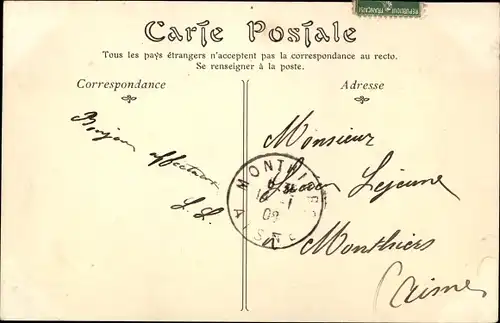 Carte Postale
Tous les pays étrangers n'acceptent pas la correspondance au recto.
Se renseigner à la poste.
Correspondance
Adresse
Bonjour affectueux
L. L.
Monsieur
Lucien Lejeune
à Monthiers
Aisne
MONTHIERS
09
AISNE